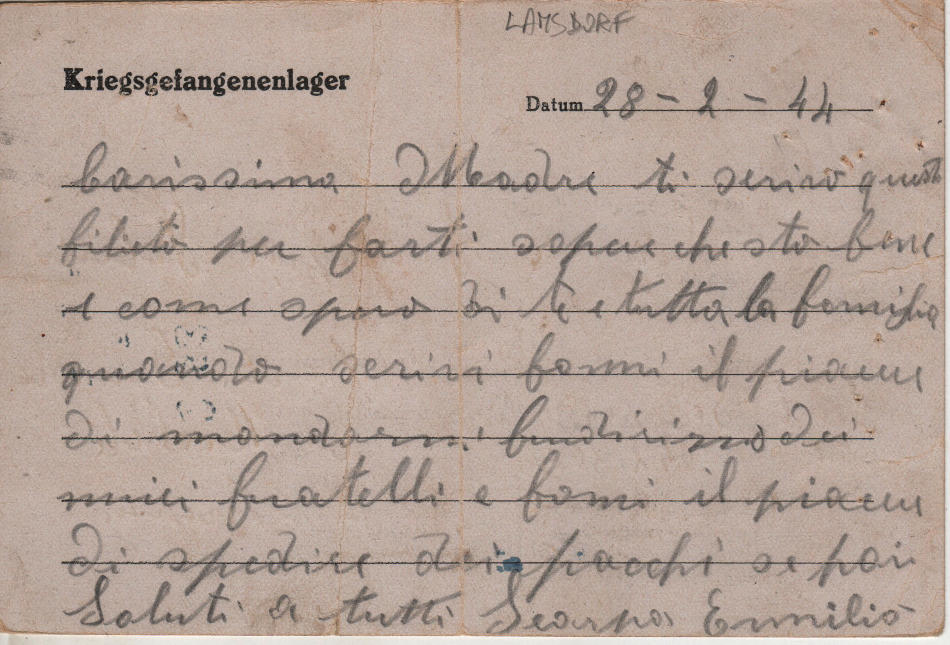 LAMSDORF
Kriegsgefangenenlager
Datum 28-2-44
Carissima Madre ti scrivo questo
per farti sapere che sto bene
e come spero di te e tutta la famiglia
quando scrivi fammi il piacere
di mandarmi dei
miei fratelli e fami il piacere
di spedire dei pacchi se poi
Saluti a tutti Scarpa Emilio